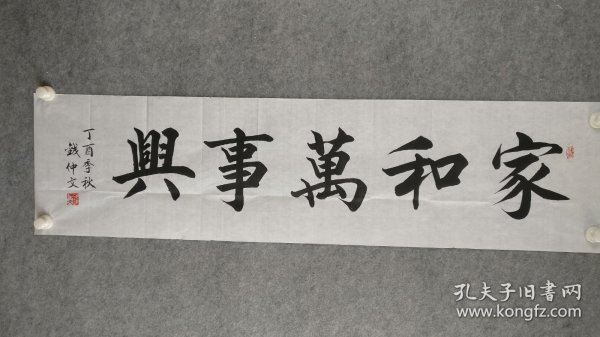 家和萬事興
丁酉季秋
錢仲文
孔夫子旧書网
www.kongfz.com